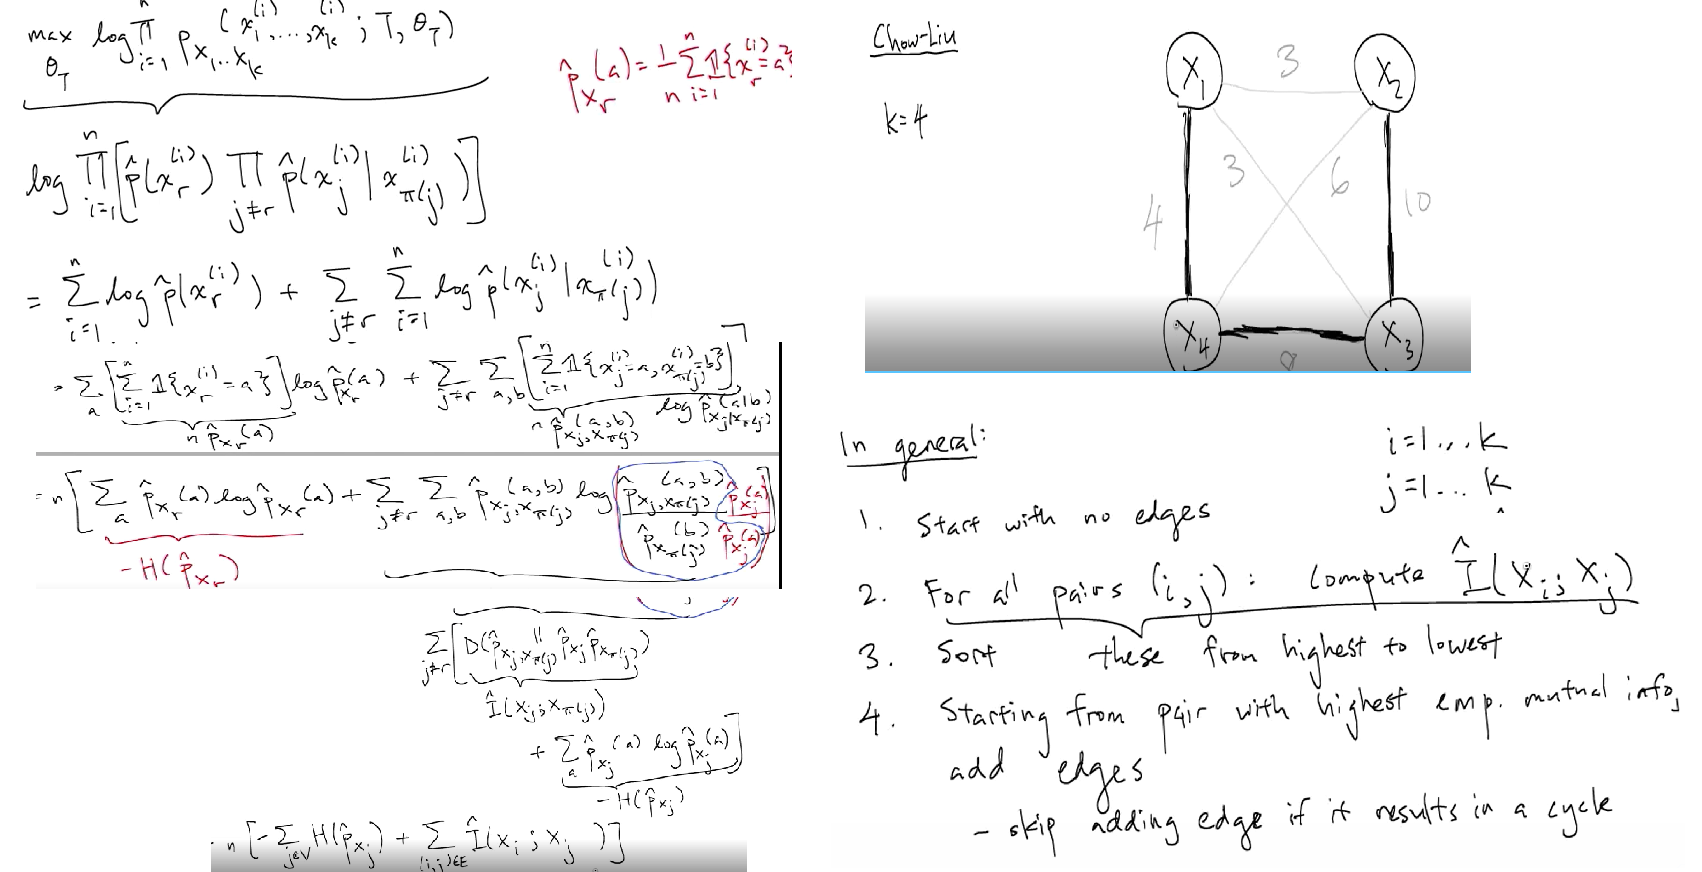 max_{θ_T} log ∏_{i=1}^{n} p_{x_1...x_k}(x_1^{(i)},...,x_k^{(i)}; T, θ_T)
p̂_{x_r}(a) = 1/n ∑_{i=1}^{n} 𝟙{x_r^{(i)} = a}
log ∏_{i=1}^{n} [p̂(x_r^{(i)}) ∏_{j≠r} p̂(x_j^{(i)} | x_{π(j)}^{(i)})]
= ∑_{i=1}^{n} log p̂(x_r^{(i)}) + ∑_{j≠r} ∑_{i=1}^{n} log p̂(x_j^{(i)} | x_{π(j)}^{(i)})
= ∑_a [∑_{i=1}^{n} 𝟙{x_r^{(i)} = a}] log p̂_{x_r}(a) + ∑_{j≠r} ∑_{a,b} [∑_{i=1}^{n} 𝟙{x_j^{(i)} = a, x_{π(j)}^{(i)} = b}] log p̂_{x_j|x_{π(j)}}(a|b)
n p̂_{x_r}(a)
n p̂_{x_j,x_{π(j)}}(a,b)
= n [∑_a p̂_{x_r}(a) log p̂_{x_r}(a) + ∑_{j≠r} ∑_{a,b} p̂_{x_j,x_{π(j)}}(a,b) log p̂_{x_j,x_{π(j)}}(a,b) p̂_{x_j}(a) / p̂_{x_{π(j)}}(b) p̂_{x_j}(a)]
-H(p̂_{x_r})
∑_{j≠r} [D(p̂_{x_j,x_{π(j)}} || p̂_{x_j} p̂_{x_{π(j)}})
Î(x_j; x_{π(j)})
+ ∑_a p̂_{x_j}(a) log p̂_{x_j}(a)]
-H(p̂_{x_j})
n [-∑_{j∈V} H(p̂_{x_j}) + ∑_{(i,j)∈E} Î(x_i; x_j)]
Chow-Liu
k=4
X_1
3
X_2
3
6
4
10
X_4
X_3
In general:
i=1...k
j=1...k
1. Start with no edges
2. For all pairs (i,j): compute Î(X_i; X_j)
3. Sort these from highest to lowest
4. Starting from pair with highest emp. mutual info,
add edges
- skip adding edge if it results in a cycle